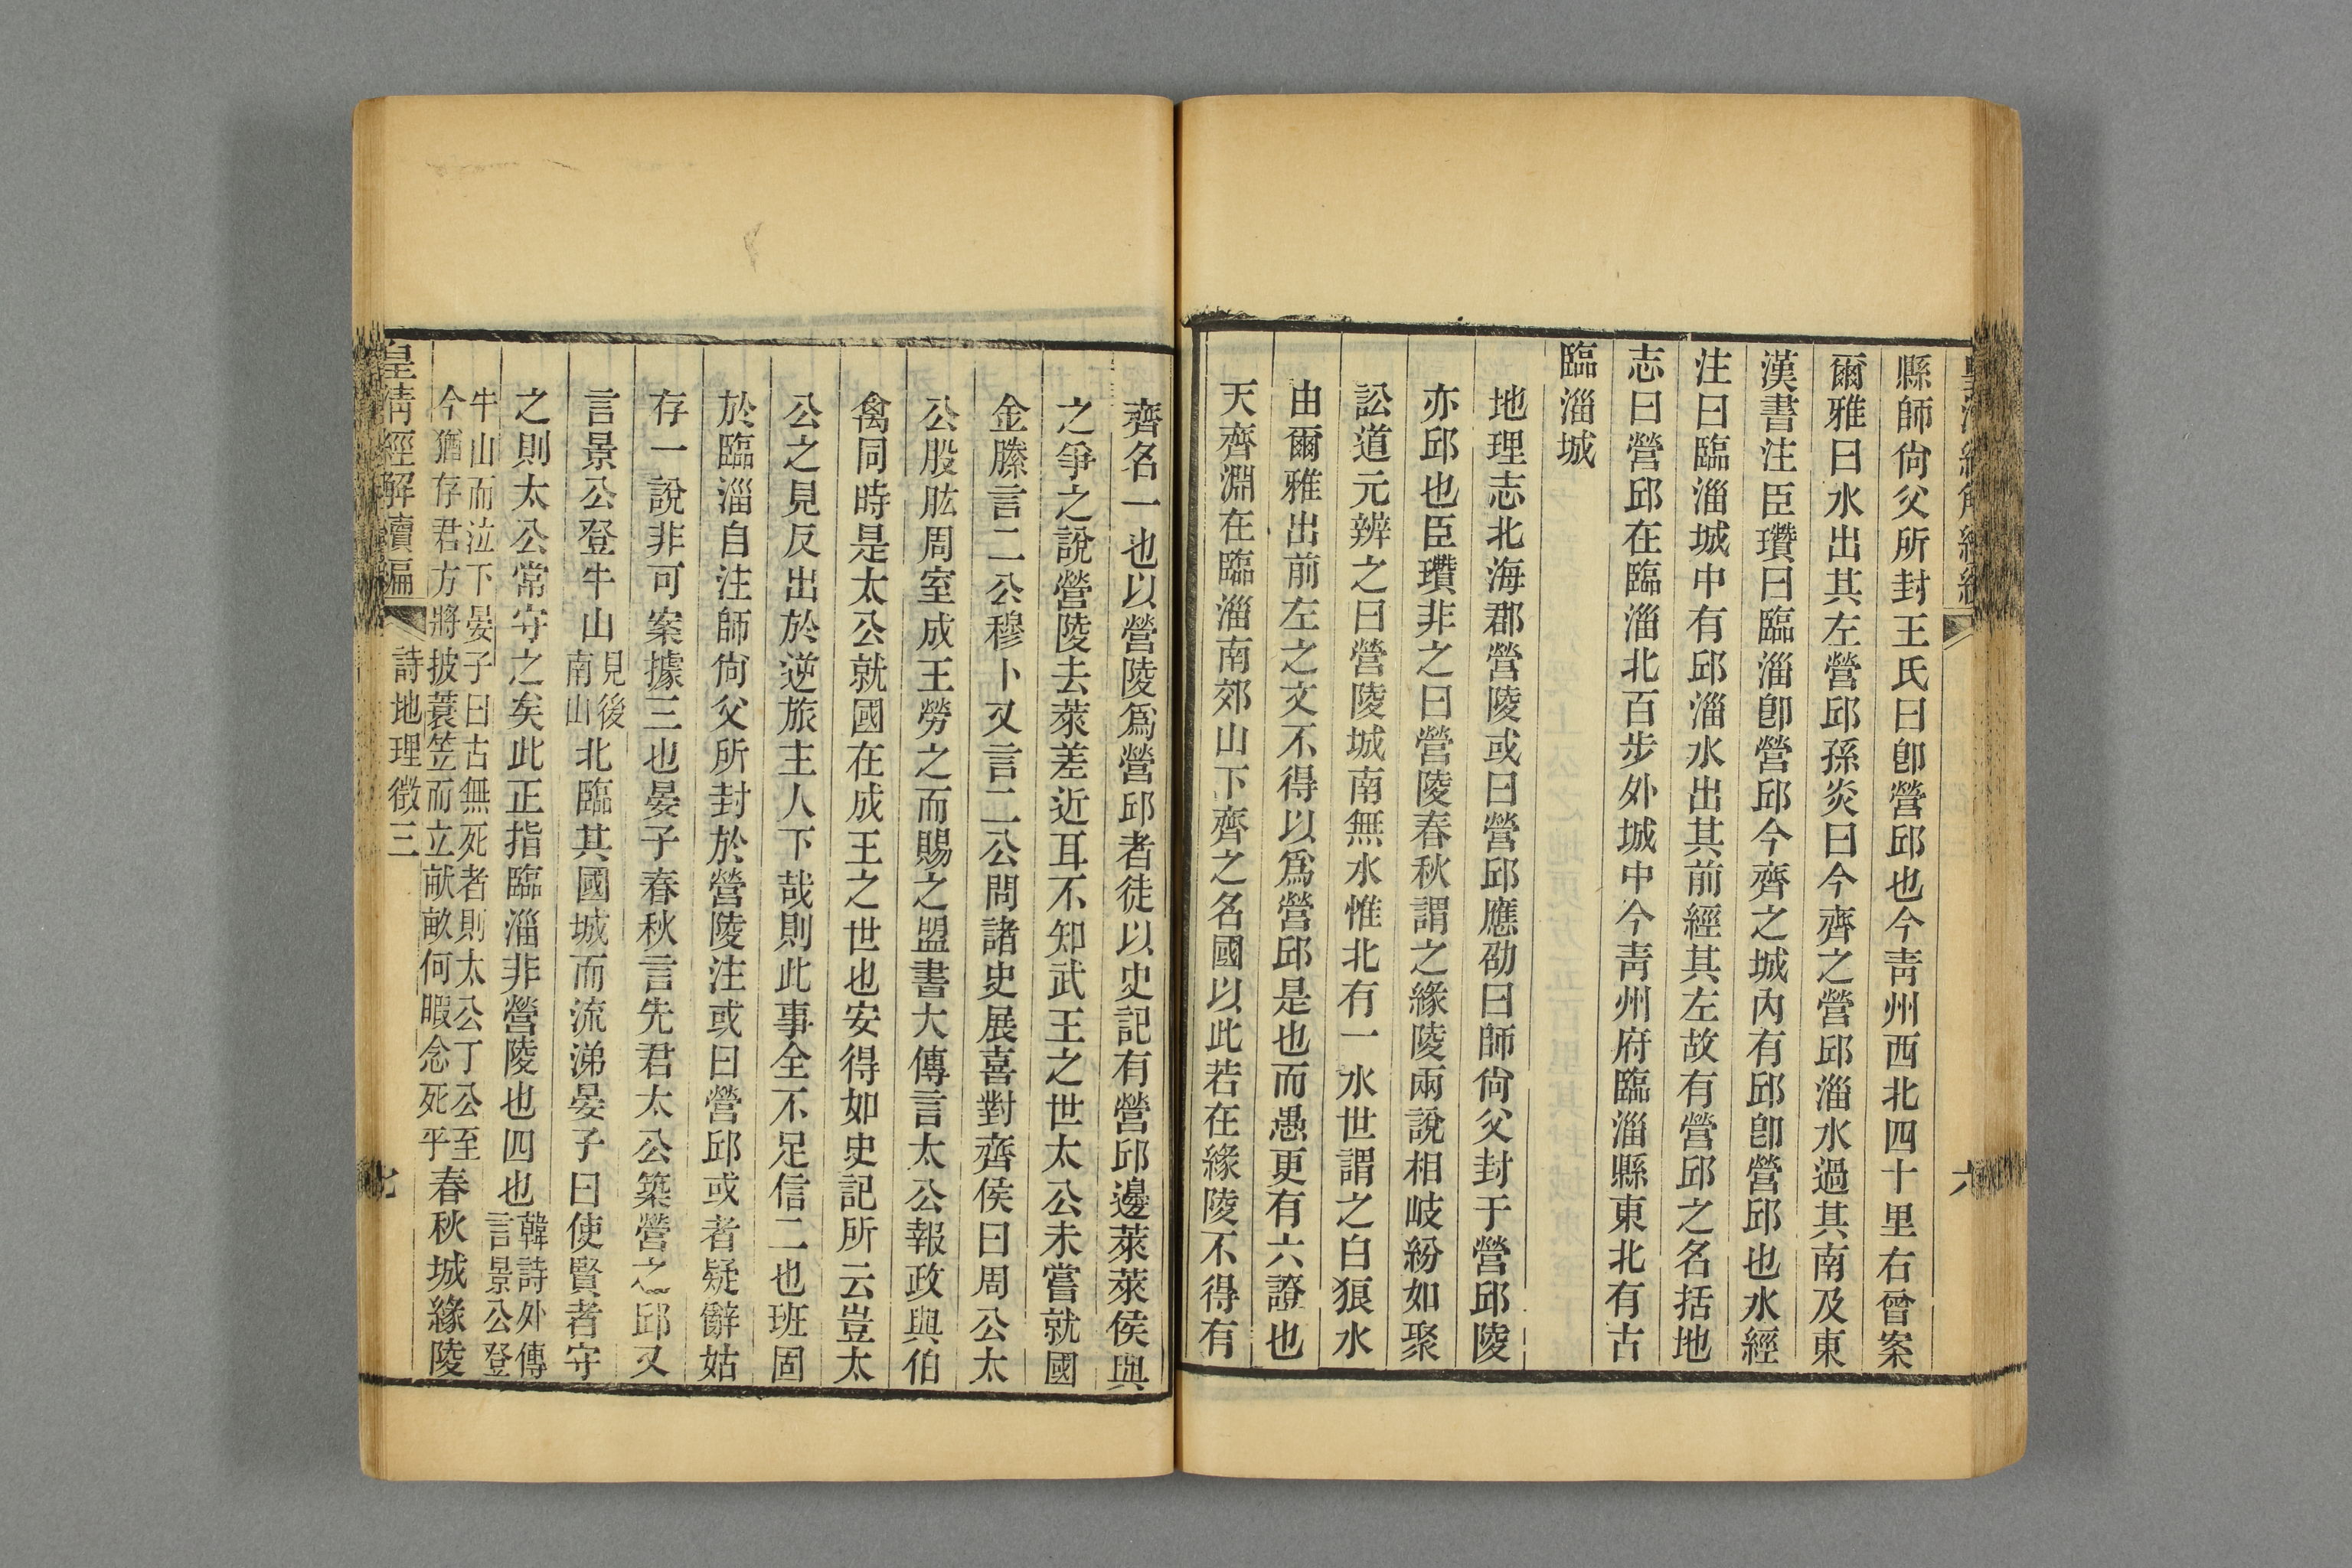 縣師尙父所封王氏曰卽營邱也今靑州西北四十里右曾案
爾雅曰水出其左營邱孫炎曰今齊之營邱淄水過其南及東
漢書注臣瓚曰臨淄卽營邱今齊之城內有邱卽營邱也水經
注曰臨淄城中有邱淄水出其前經其左故有營邱之名括地
志曰營邱在臨淄北百步外城中今靑州府臨淄縣東北有古
臨淄城
地理志北海郡營陵或曰營邱應劭曰師尙父封于營邱陵
亦邱也臣瓚非之曰營陵春秋謂之緣陵兩說相岐紛如聚
訟道元辨之曰營陵城南無水惟北有一水世謂之白狼水
由爾雅出前左之文不得以爲營邱是也而愚更有六證也
天齊淵在臨淄南郊山下齊之名國以此若在緣陵不得有
六
齊名一也以營陵爲營邱者徒以史記有營邱邊萊萊侯與
之爭之說營陵去萊差近耳不知武王之世太公未嘗就國
金縢言二公穆卜又言二公問諸史展喜對齊侯曰周公太
公股肱周室成王勞之而賜之盟書大傳言太公報政與伯
禽同時是太公就國在成王之世也安得如史記所云豈太
公之見反出於逆旅主人下哉則此事全不足信二也班固
於臨淄自注師尙父所封於營陵注或曰營邱或者疑辭姑
存一說非可案據三也晏子春秋言先君太公築營之邱又
言景公登牛山見後南山北臨其國城而流涕晏子曰使賢者守
之則太公常守之矣此正指臨淄非營陵也四也韓詩外傳言景公登
牛山而泣下晏子曰古無死者則太公丁公至今猶存君方將披蓑笠而立畎畝何暇念死乎春秋城緣陵
皇淸經解續編
詩地理徵三
七